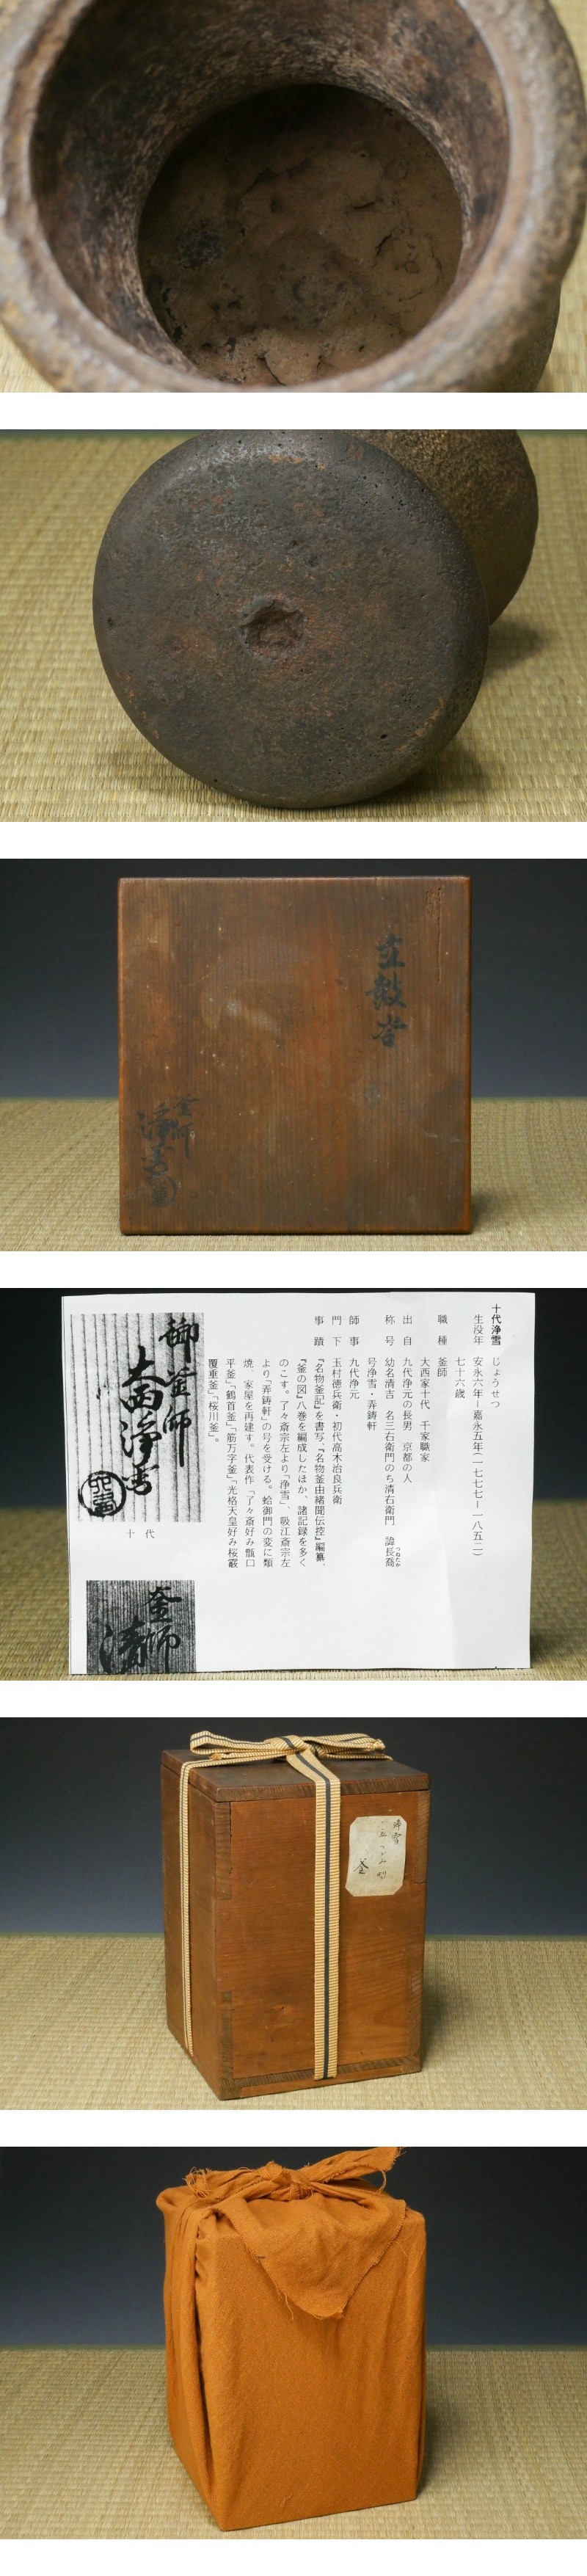 立鼓釜
釜師
浄雪
十代浄雪　じょうせつ
生没年　安永六年ー嘉永五年(一七七七ー一八五二)
七十六歳
職　種　釜師
大西家十代　千家職家
出　自　九代浄元の長男　京都の人
称　号　幼名清吉　名三右衛門のち清右衛門　諱長喬
つねたか
号浄雪・弄鋳軒
師　事　九代浄元
門　下　玉村徳兵衛・初代高木治良兵衛
事　蹟　『名物釜記』を書写、『名物釜由緒聞伝控』編纂、
『釜の図』八巻を編成したほか、諸記録を多く
のこす。了々斎宗左より「浄雪」、吸江斎宗左
より「弄鋳軒」の号を受ける。蛤御門の変に類
焼　家屋を再建す。代表作「了々斎好み甑口
平釜」「鶴首釜」「筋万字釜」、光格天皇好み桜巌
覆垂釜」「桜川釜」。
御釜師
大西浄雪
十代
釜師
清
浄雪
立つゞみ
釜